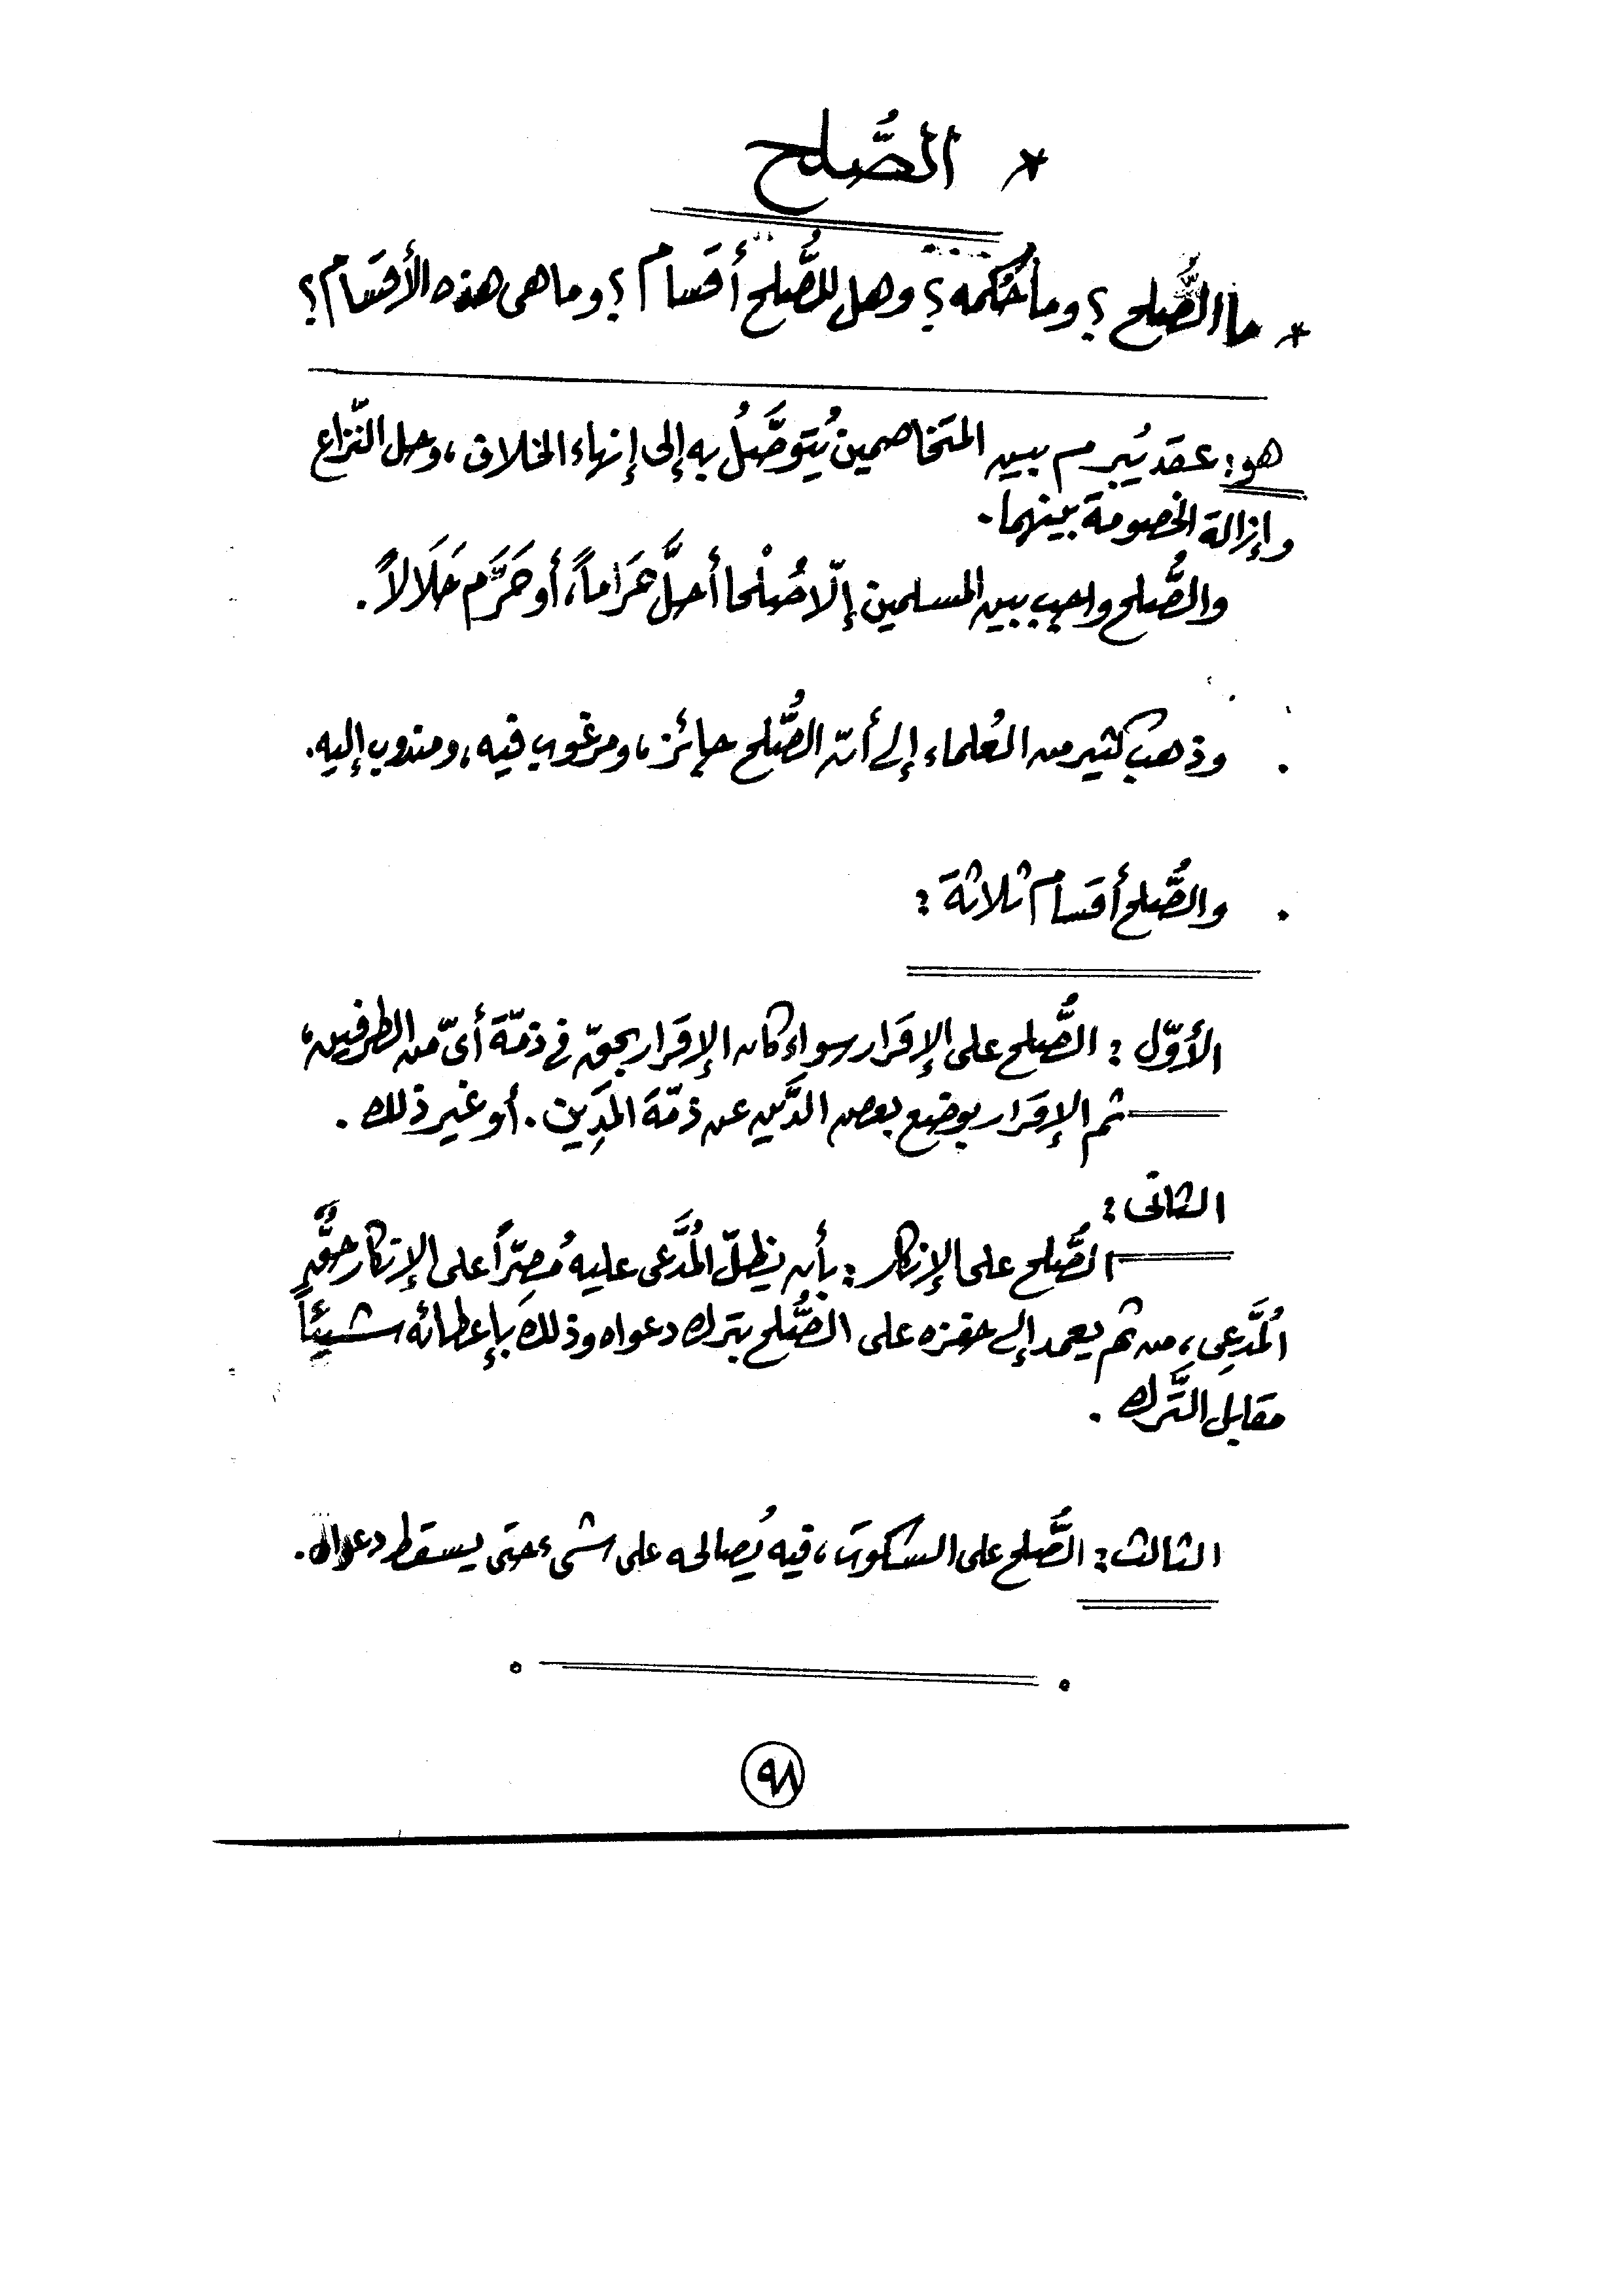 * الصُّلح
* ما الصُّلح ؟ وما حُكمه ؟ وهل للصُّلح أقسام ؟ وما هى هذه الأقسام ؟
هو : عقد يُبرم بين المتخاصمين يُتوصَّلُ به إلى إنهاء الخلاف ، وحل النّزاع
وإزالة الخصومة بينهما .
والصُّلح واجب بين المسلمين إلّا صُلْحا أحلَّ حَرَاماً ، أو حَرَّم حَلَالاً .
. وذهب كثير من العُلماء إلى أنّ الصُّلح جائز ، ومرغوب فيه ، ومندوب إليه .
. والصُّلح أقسام ثلاثة :
الأوّل : الصُّلح على الإقرار سواء كان الإقرار بحقّ فى ذمّة أىّ من الطرفين ،
ثم الإقرار بوضع بعض الدَّين عن ذمّة المَدِين . أو غير ذلك .
الثانى :
الصُّلح على الإنكار : بأن يظلّ المُدَّعى عليه مُصِرّاً على الإنكار حقٍّ
المُدَّعِى ، من ثم يعمد إلى حفزه على الصُّلح بترك دعواه وذلك بإعطائه شيئاً
مقابل التَّرك .
الثالث : الصُّلح على السكوت ، فيه يُصالحه على شىء حتى يسقط دعواه .
٩٨